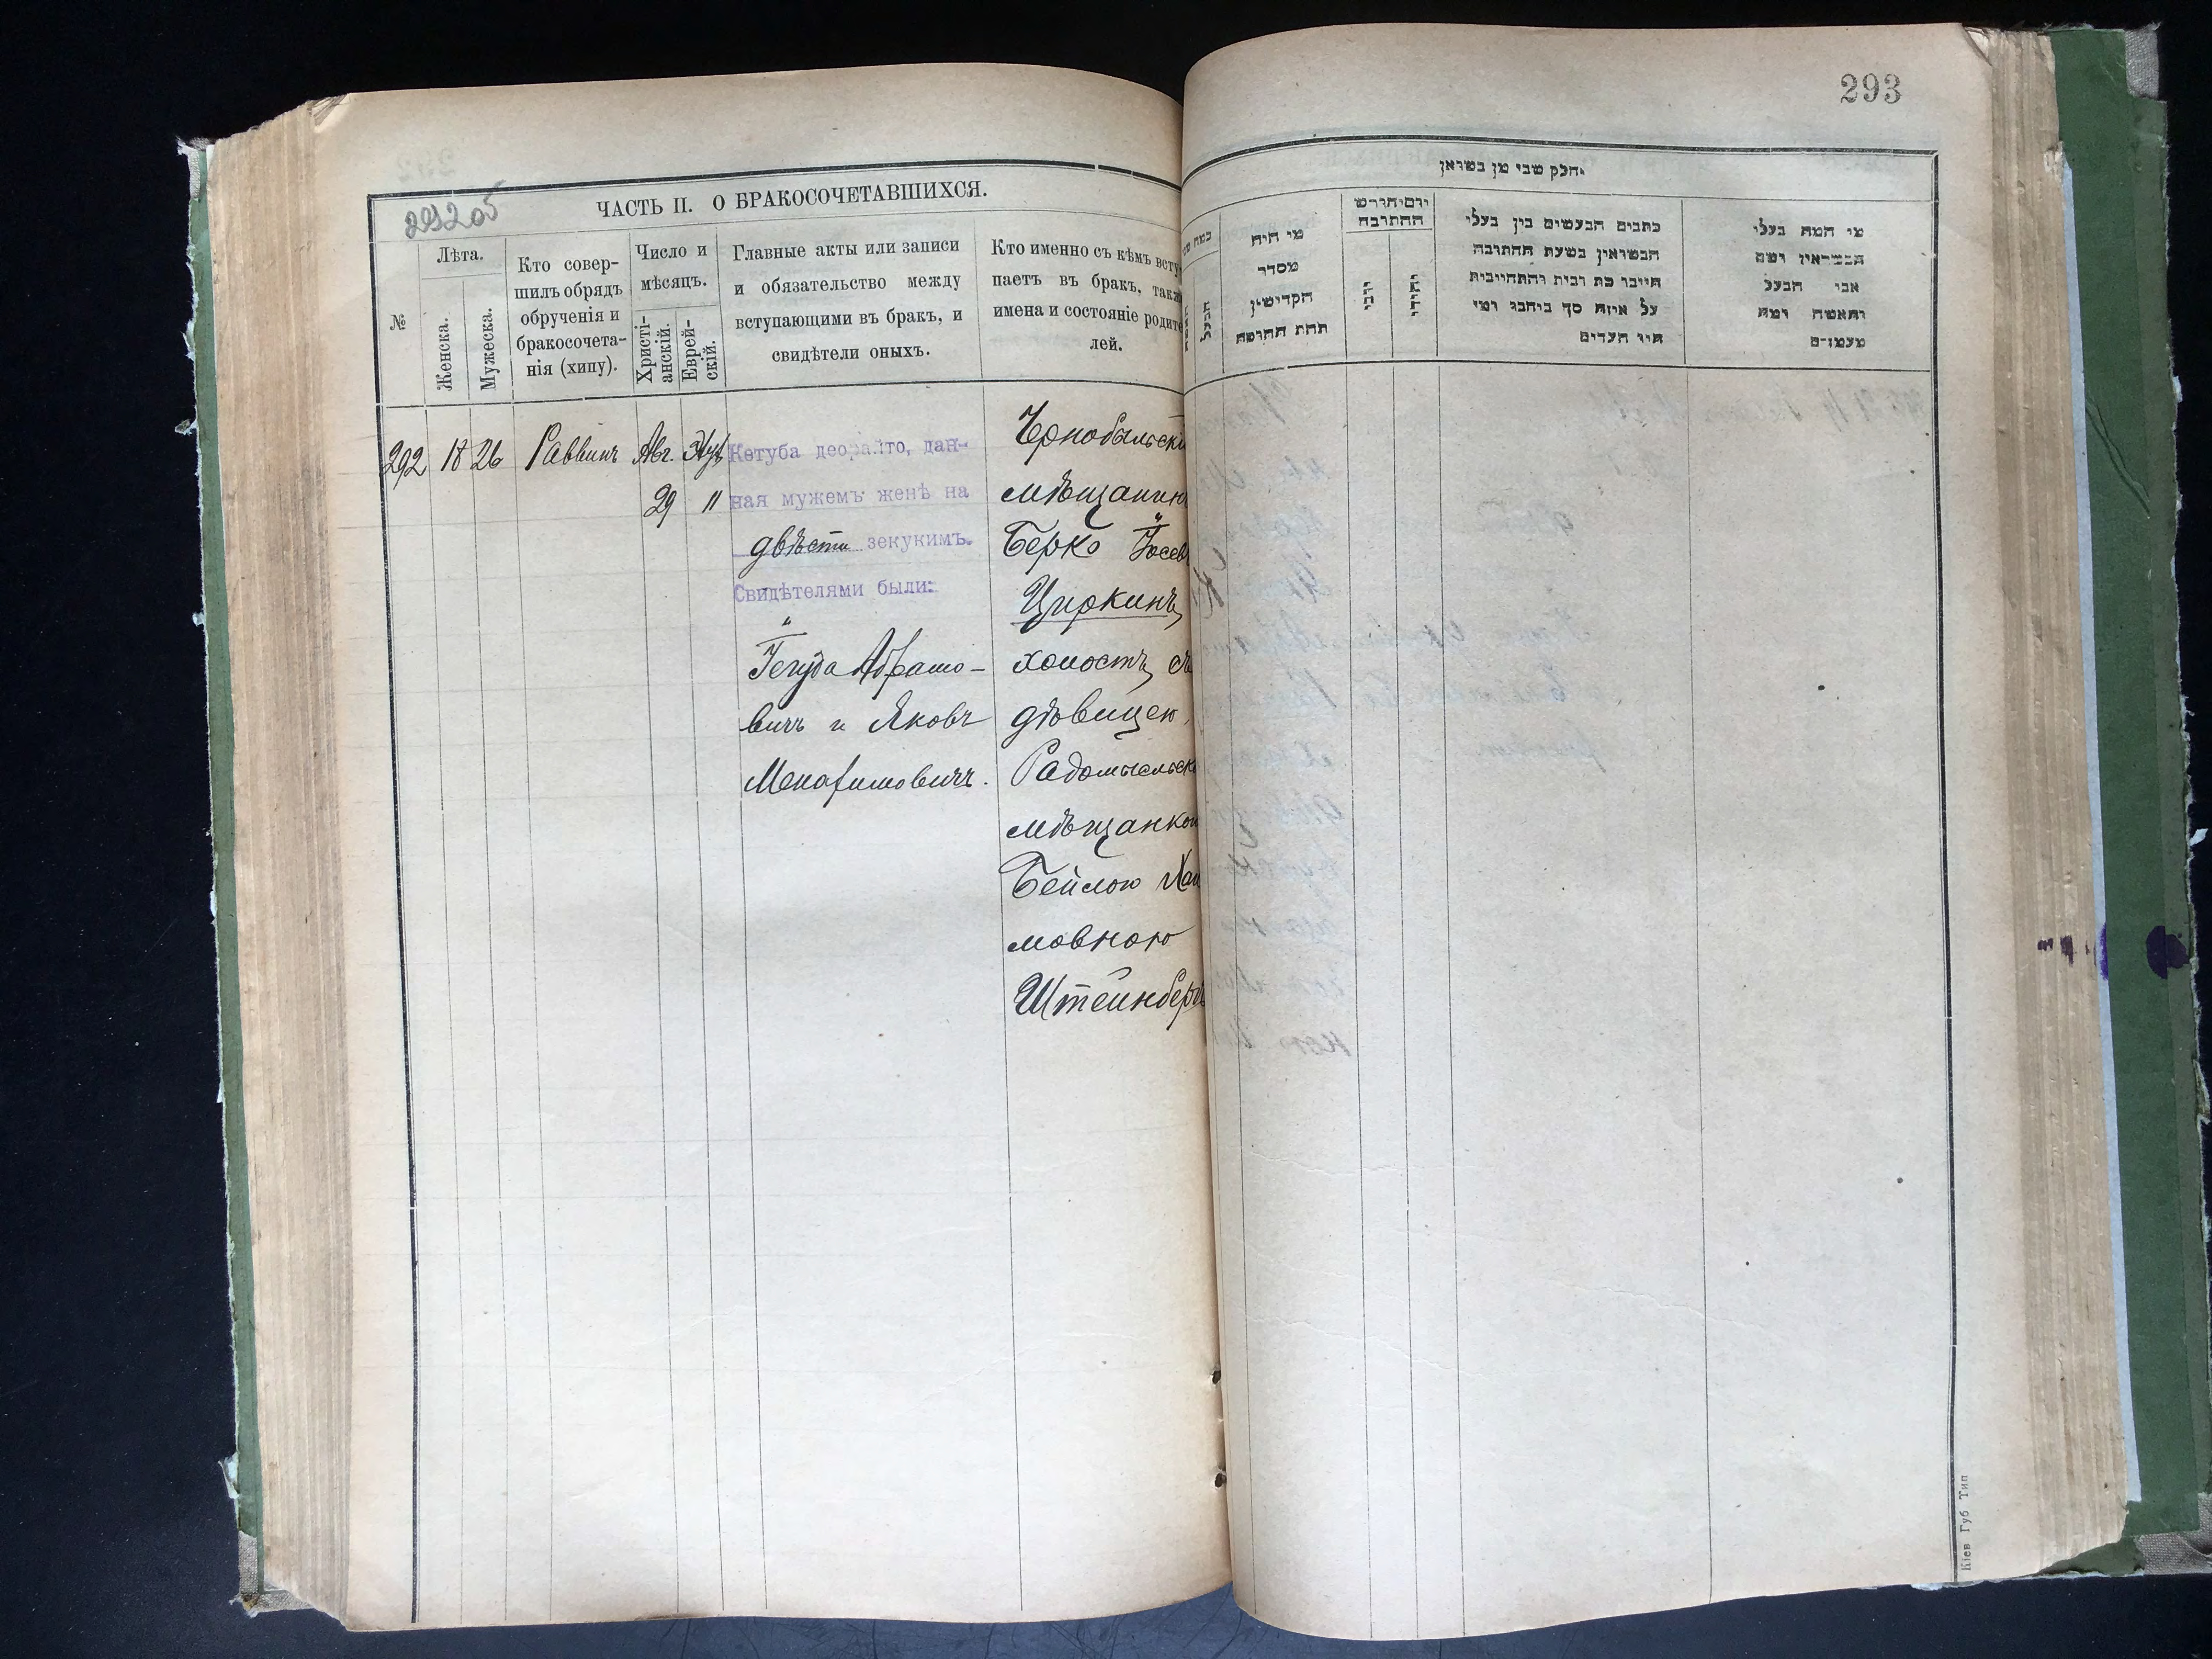 292 об
ЧАСТЬ II. О БРАКОСОЧЕТАВШИХСЯ.
№
Лѣта.
Женска.
Мужеска.
Кто совер-
шилъ обрядъ
обрученія и
бракосочета-
нія (хипу).
Число и
мѣсяцъ.
Христі-
анскій.
Еврей-
скій.
Главные акты или записи
и обязательство между
вступающими въ бракъ, и
свидѣтели оныхъ.
Кто именно съ кѣмъ всту
паетъ въ бракъ, такж
имена и состояніе родите
лей.
292 18 26 Раввинъ Авг.
29 11
Кетуба деорайто, дан-
ная мужемъ женѣ на
двѣсти зекукимъ.
Свидѣтелями были:
Іегуда Абрамо-
вичъ и Яковъ
Менахимовичъ.
Чернобыльскі
мѣщанинъ
Берко Іосев
Циркинъ,
холостъ, съ
дѣвицею,
Радомысльск
мѣщанкой
Бейлою Хаи
мовною
Штейнбергъ
293
חלק שני מן נשואין
מי המה בעלי
הנשואין ושם
אבי הבעל
והאשה ומה
מעמדם
כתבים הנעשים בין בעלי
הנשואין בשעת החתונה
חיובי כת רבית והתחייבות
על איזה סך ביניהם ומי
היו העדים
יום וחודש
החתונה
יהודי
נוצרי
מי היה
מסדר
הקדושין
תחת החופה
הבעל
Кіев Губ Тип